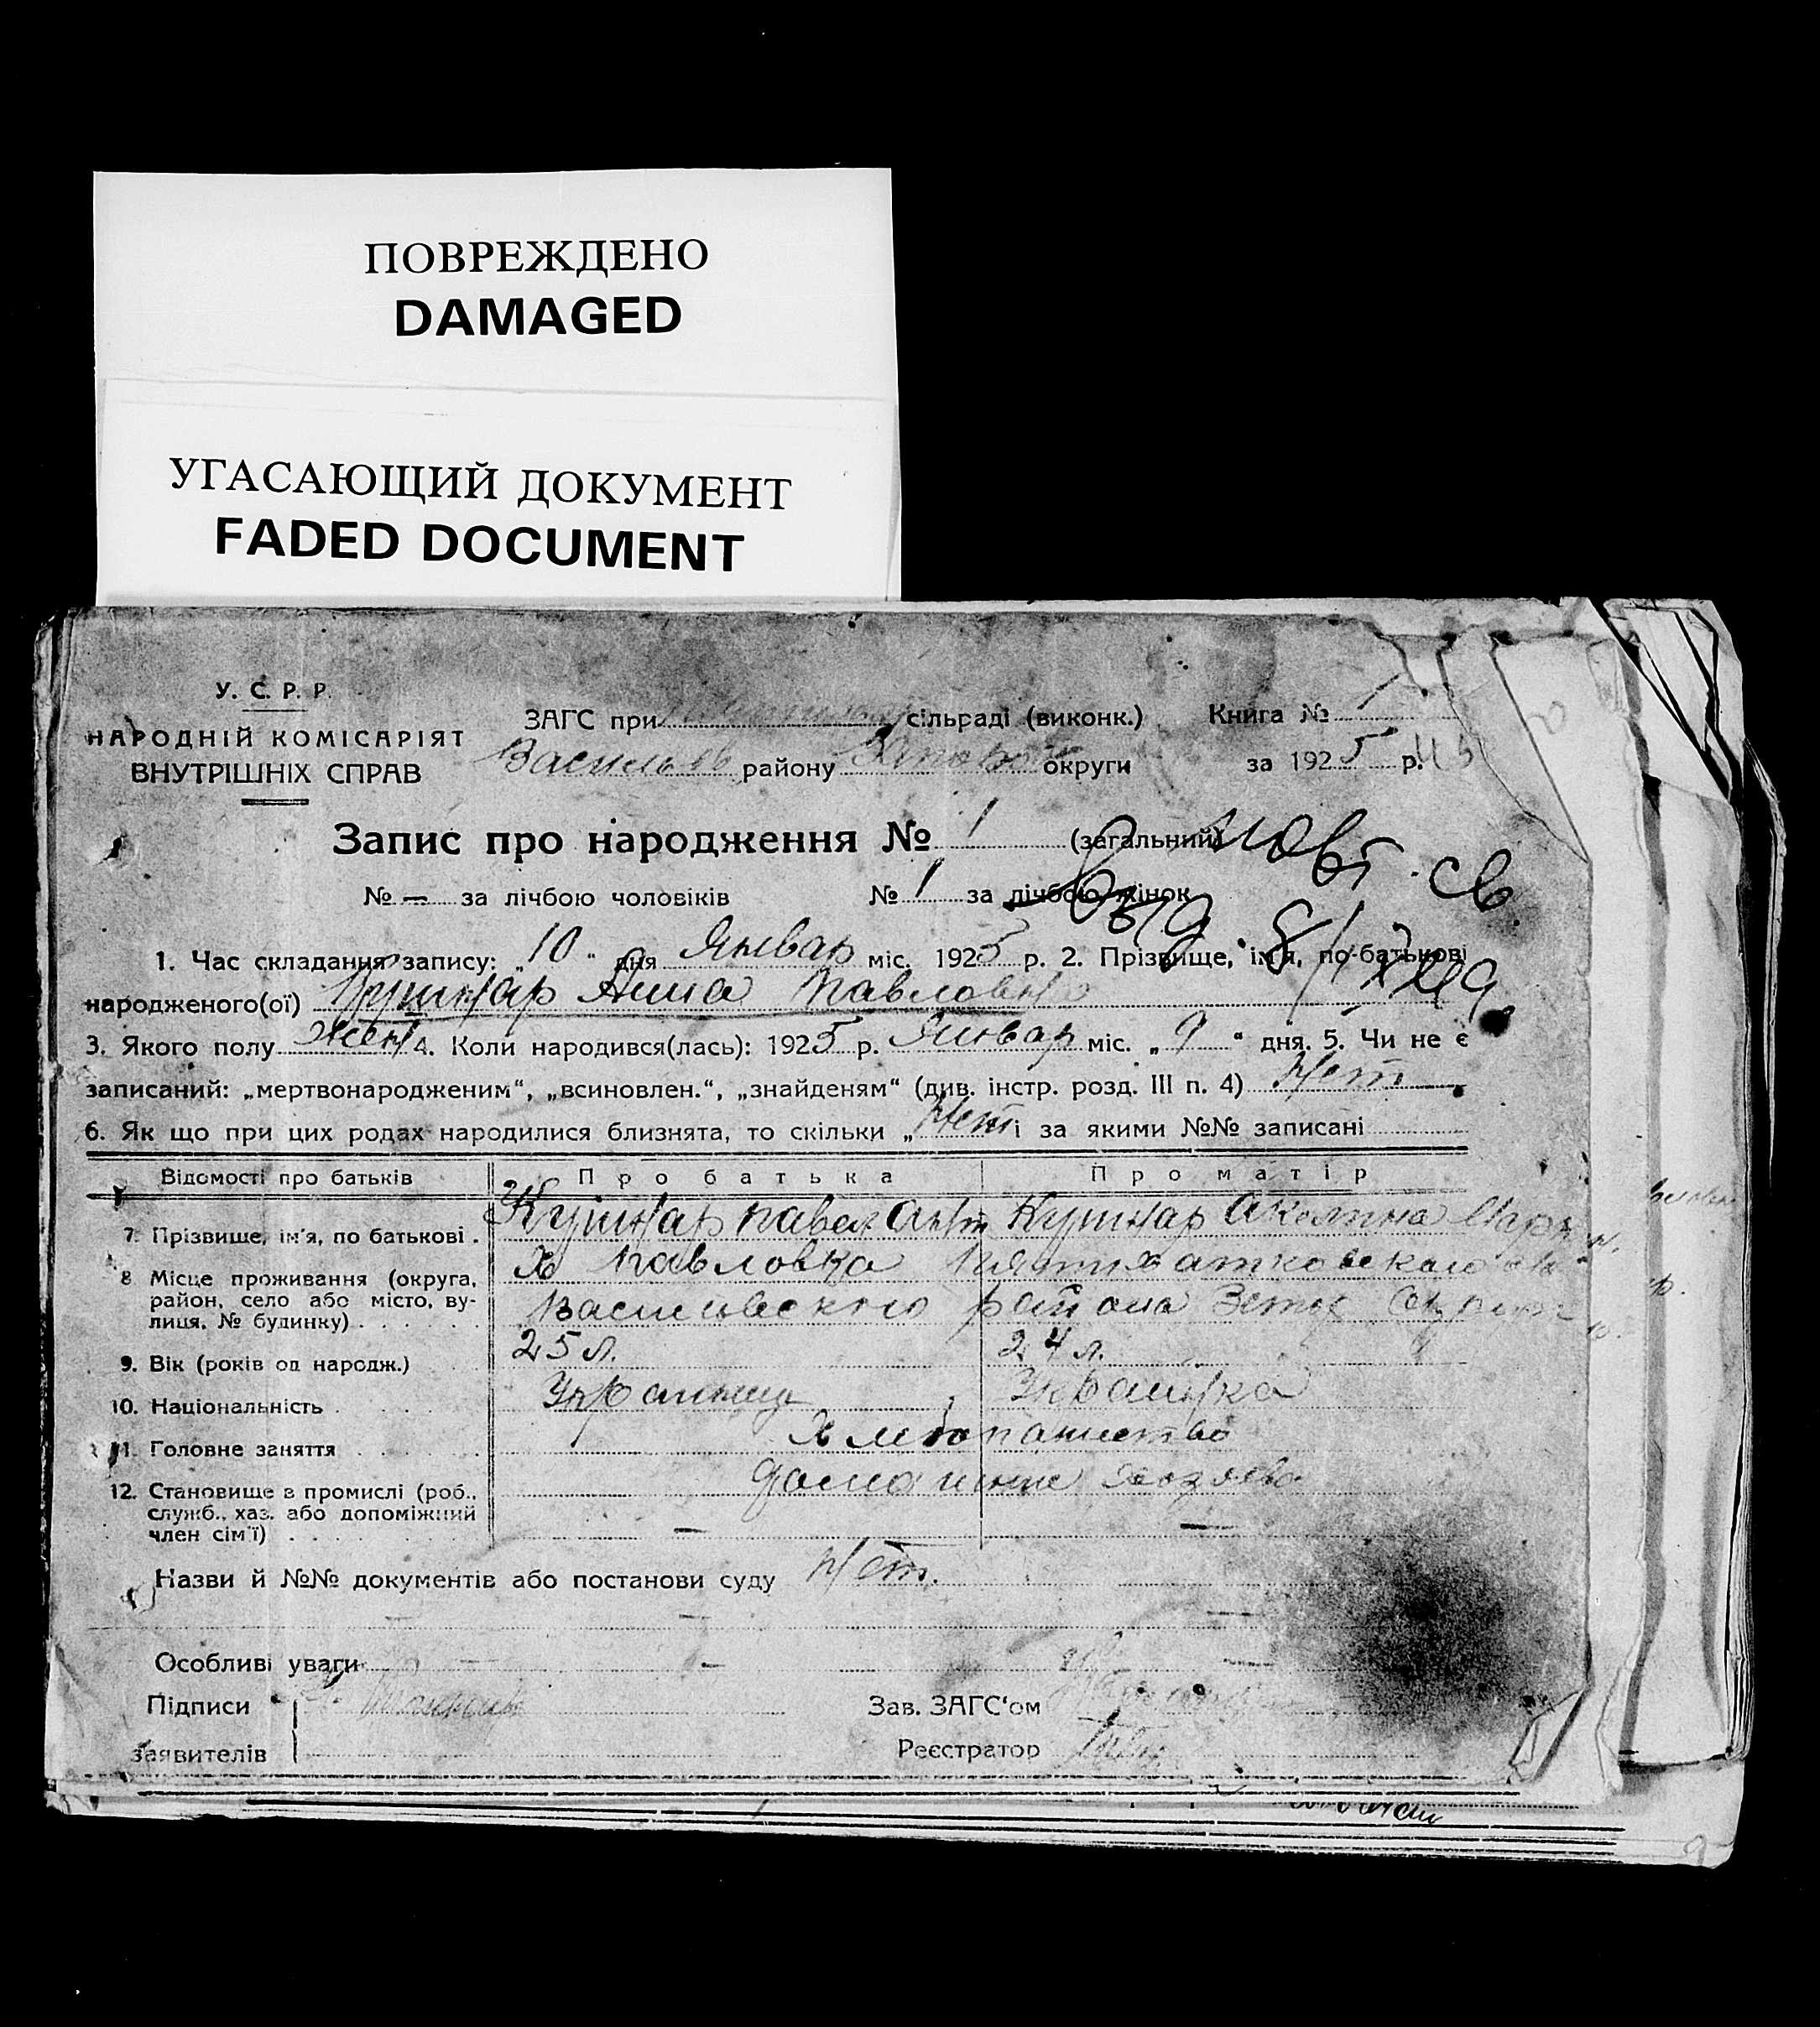 ПОВРЕЖДЕНО
DAMAGED
УГАСАЮЩИЙ ДОКУМЕНТ
FADED DOCUMENT
У. С. Р. Р.
НАРОДНІЙ КОМІСАРІЯТ
ВНУТРІШНІХ СПРАВ
ЗАГС при сільраді (виконк.)
Васильев району округи
Книга № 1
за 1925 р.
Запис про народження № 1 (загальний)
№ — за лічбою чоловіків № 1 за лічбою жінок
1. Час складання запису: „10“ дня Январ міс. 1925 р. 2. Прізвище, ім'я, по-батькові
народженого(ої) Кушнар Анна Павловна
3. Якого полу жен 4. Коли народився(лась): 1925 р. Январ міс. „9“ дня. 5. Чи не є
записаний: „мертвонародженим“, „всиновлен.“, „знайденям“ (див. інстр. розд. III п. 4) Нет
6. Як що при цих родах народилися близнята, то скільки „Нет і за якими №№ записані
Відомості про батьків Про батька Про матір
7. Прізвище, ім'я, по батькові . Кушнар Павел Ант Кушнар Акелина
8. Місце проживання (округа, район, село або місто, вулиця, № будинку) . . . . . . Х Павловка Пятихатковского
Васильевского района
9. Вік (років од народж.) 25 л. 24 л.
10. Національність . Украинец Украинка
11. Головне заняття . Хлебопашество
12. Становище в промислі (роб., служб., хаз. або допоміжний член сім'ї) . . . . . .
— —
Назви й №№ документів або постанови суду Нет.
Особливі уваги
Підписи
заявителів
Зав. ЗАГС'ом
Реєстратор